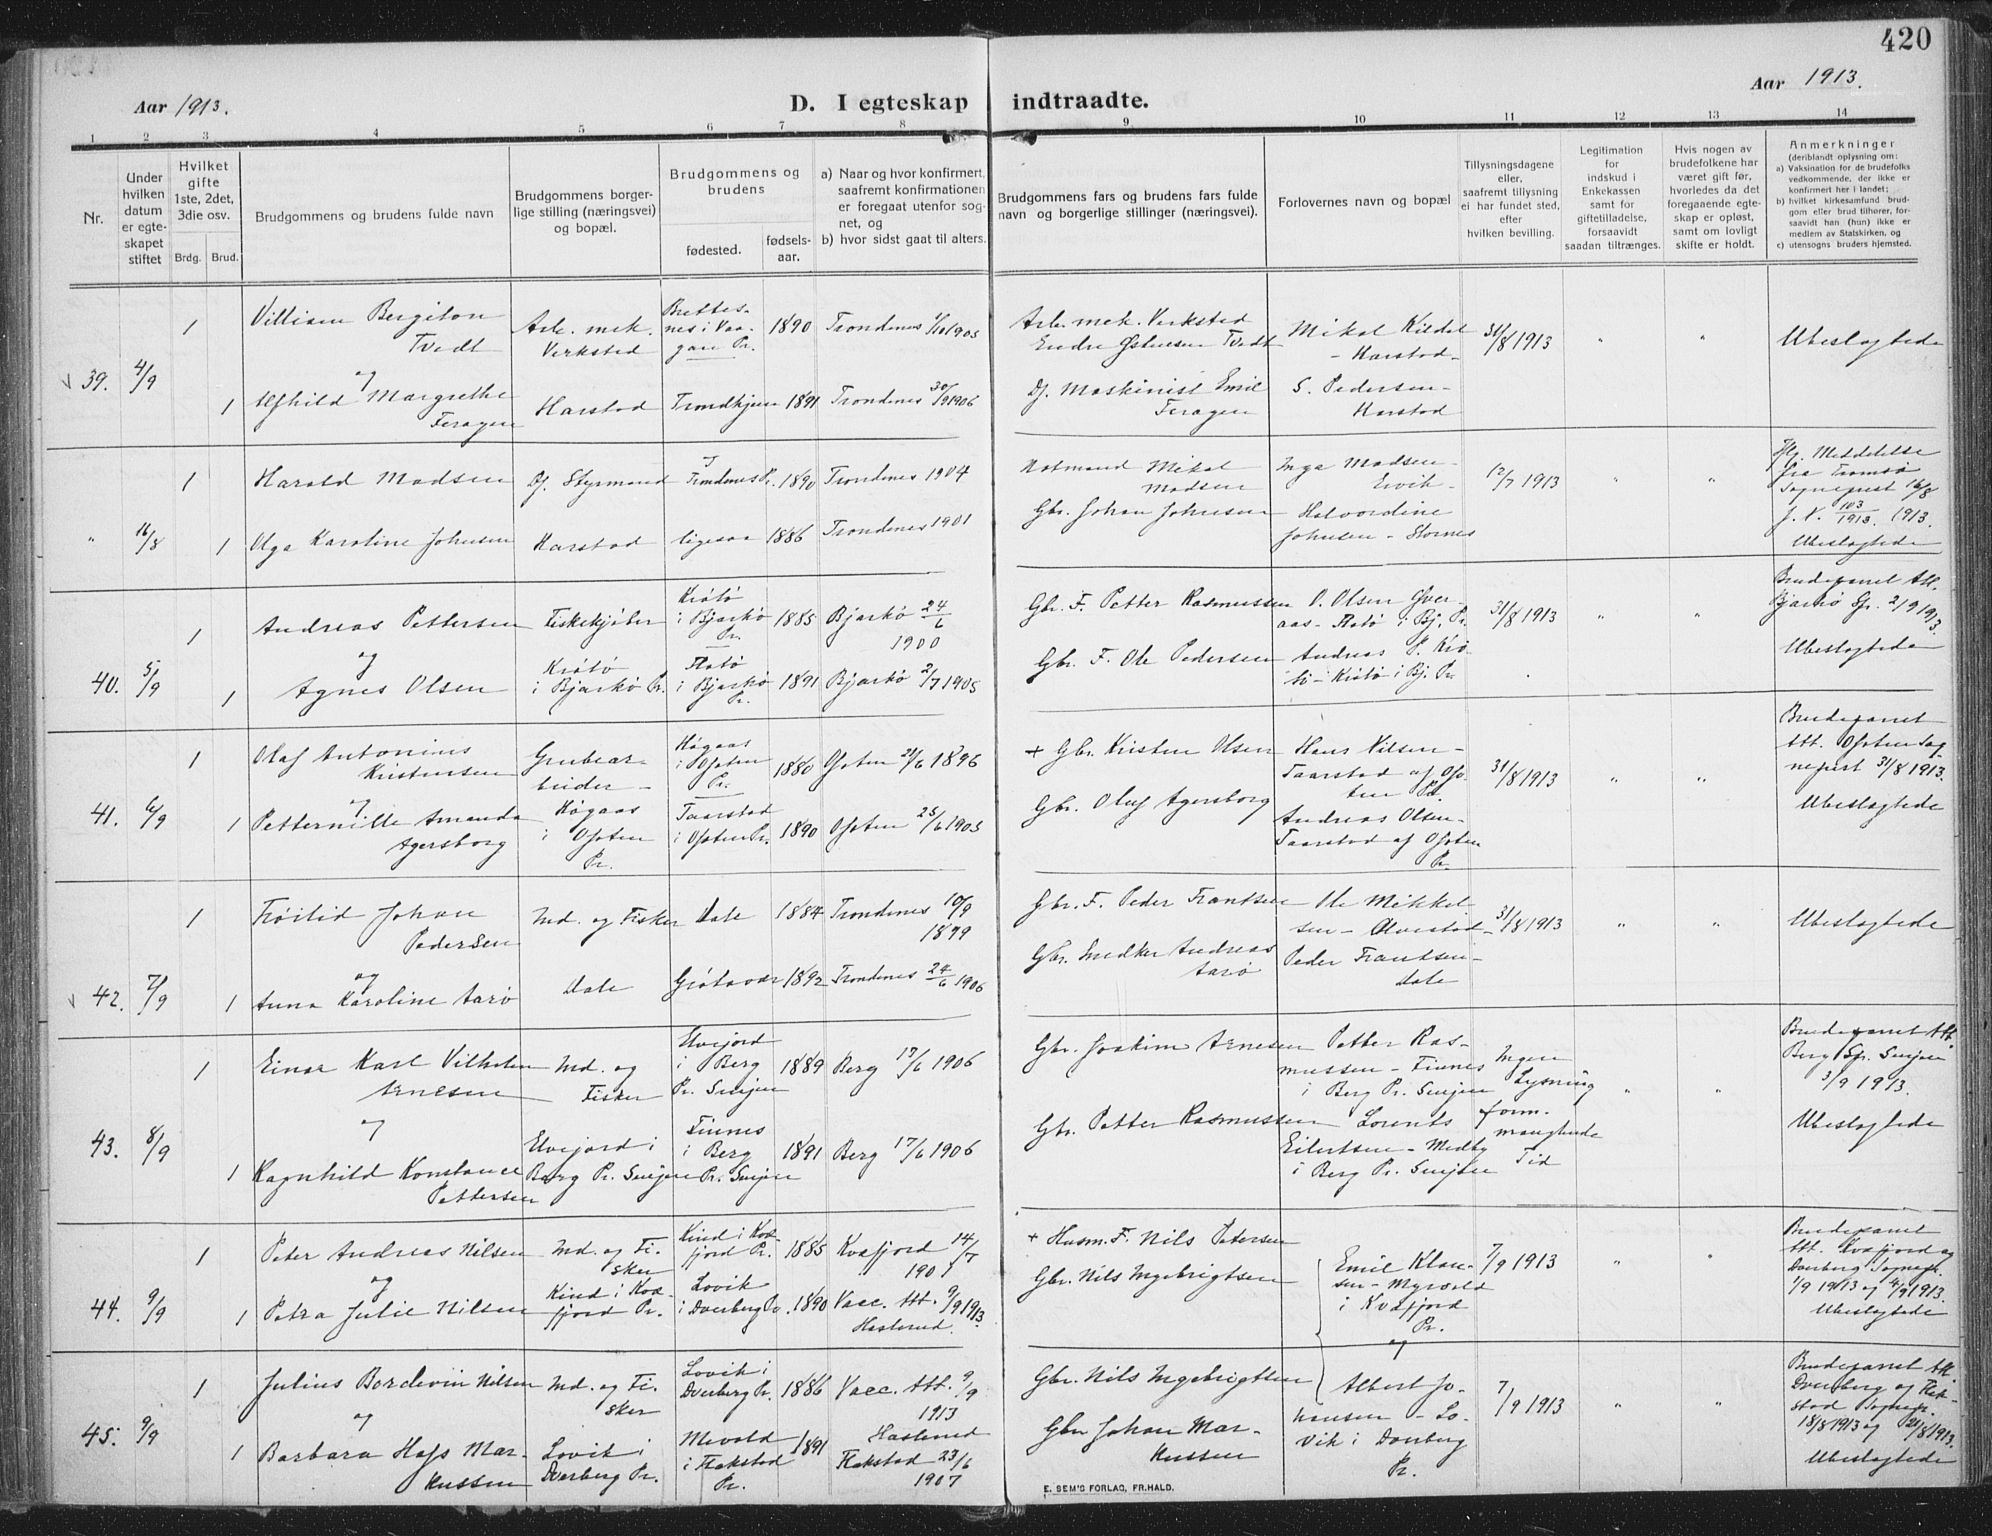 420
Aar 1913.
D. I egteskap indtraadte.
Aar 1913.
1 2 3 4 5 6 7 8 9 10 11 12 13 14
Nr.
Under hvilken datum er egteskapet stiftet
Hvilket gifte 1ste, 2det, 3die osv.
Brdg. Brud.
Brudgommens og brudens fulde navn
Brudgommens borgerlige stilling (næringsvei) og bopæl.
Brudgommens og brudens
fødested.
fødselsaar.
a) Naar og hvor konfirmert, saafremt konfirmationen er foregaat utenfor sognet, og
b) hvor sidst gaat til alters.
Brudgommens fars og brudens fars fulde navn og borgerlige stillinger (næringsvei).
Forlovernes navn og bopæl
Tillysningsdagene eller, saafremt tillysning ei har fundet sted, efter hvilken bevilling.
Legitimation for indskud i Enkekassen samt for giftetilladelse, forsaavidt saadan tiltrænges.
Hvis nogen av brudefolkene har været gift før, hvorledes da det foregaaende egteskap er opløst, samt om lovligt skifte er holdt.
Anmerkninger
(deriblandt oplysning om:
a) Vaksination for de brudefolks vedkommende, der ikke er konfirmert her i landet;
b) hvilket kirkesamfund brudgom eller brud tilhører, forsaavidt han (hun) ikke er medlem av Statskirken, og
c) utensogns bruders hjemsted.
39. 4/9
1
Bergiton Tvedt
Arb. mek. Verksted
Brettesnes i Vaagan Pr.
1890
Trondenes 1/10 1905
Arb. mek. Verksted
Tvedt
Mikal Kildal - Harstad -
31/8 1913
" "
Ubeslagtede
og
1
Margrethe Feragen
Harstad
Trondhjem
1891
Trondenes 30/9 1906
Df. Maskinist Emil Feragen
S. Pedersen - Harstad
" 16/8
1
Harald Madsen
Df. Styrmand
Trondenes Pr.
1890
Trondenes 1904
Mikal Madsen
Inga Madsen - Ervik -
12/7 1913
" "
Iflg. Meddelelse fra Tromsø Sognepræst 16/8 1913.
J. N. 103/1913.
Ubeslagtede
1
Olga Karoline Johnsen
Harstad
ligesaa
1886
Trondenes 1901
Gbr. Johan Johnsen
Halvordine Johnsen - Stornes
40. 5/9
1
Andreas Pettersen
Fiskekjøber
Krøtø i Bjarkø Pr.
1885
Bjarkø 24/6 1900
Gbr. F. Petter Rasmussen
O. Olsen Øveraas - Flatø i Bj. Pr.
31/8 1913
" "
Brudeparret Att. Bjarkø Sp. 2/9 1913.
Ubeslagtede
og
1
Agnes Olsen
Krøtø i Bjarkø Pr.
Flatø i Bjarkø Pr.
1891
Bjarkø 2/7 1905
Gbr. F. Ole Pedersen
Andreas P. Krøtø - Krøtø i Bj. Pr
41. 6/9
1
Olaf Antonius Kristensen
Grubearbeider -
Høgaas i Ofoten Pr.
1880
Ofoten 21/6 1896
+ Gbr. Kristen Olsen
Hans Nilsen - Taarstad af Ofoten Pr.
31/8 1913
" "
Brudeparret Att. Ofoten Sognepræst 31/8 1913.
Ubeslagtede
1
Petternille Amanda Agersborg
Høgaas i Ofoten Pr.
Taarstad i Ofoten Pr.
1890
Ofoten 25/6 1905
Gbr. Oluf Agersborg
Andreas Olsen - Taarstad af Ofoten Pr.
42. 7/9
1
Frøitid Johan Pedersen
Ind. og Fisker
Dale
1884
Trondenes 10/9 1899
Gbr. F. Peder Frantsen
Ole Mikkelsen -
31/8 1913
" "
Ubeslagtede
og
1
Anna Karoline Aarø
Dale
Grøtavær
1892
Trondenes 24/6 1906
Andreas Aarø
Peder Frantsen - Dale
43. 8/9
1
Einar Karl Vilhelm Arnesen
Ind. og Fisker
Elvejord i Berg Pr. Senjen
1889
Berg 17/6 1906
Gbr. Joakim Arnesen
Petter Rasmussen - Finnes i Berg Pr. Senjen
Ingen Lysning form. manglende Tid
" "
Brudeparret Att. Berg Sp. Senjen 3/9 1913.
Ubeslagtede
og
1
Ragnhild Konstance Pettersen
Elvejord i Berg Pr. Senjen
Finnes i Berg Pr. Senjen
1891
Berg 17/6 1906
Gbr. Petter Rasmussen
Lorents Eilertsen - Medby i Berg Pr. Senjen
44. 9/9
1
Peter Andreas Nilsen
Ind. og Fisker
Kind i Kvæfjord Pr.
1885
Kvæfjord 14/7 1901
+ Husm. F. Nils Petersen
Emil Klausen - Myrvold i Kvæfjord Pr.
7/9 1913
" "
Brudeparret Att. Kvæfjord og Dverberg Sognepr. 1/9 1913 og 4/9 1913.
Ubeslagtede
og
1
Petra Julie Nilsen
Kind i Kvæfjord Pr.
Lovik i Dverberg Pr.
1890
Vacc. Att. 9/9 1913. Haslerud.
Gbr. Nils Ingebrigtsen
og
45. 9/9
1
Julius Bordevin Nilsen
Ind. og Fisker
Lovik i Dverberg Pr.
1886
Vacc. Att. 9/9 1913 Haslerud
Gbr. Nils Ingebrigtsen
Albert Johansen - Lovik i Dverberg Pr.
7/9 1913
" "
Brudeparret Att. Dverberg og Flakstad Sognepr. 18/8 1913 og 21/8 1913.
Ubeslagtede
og
1
Barbara Hofs Markussen
Lovik i Dverberg Pr.
i Flakstad Pr.
1891
Flakstad 23/6 1907
Gbr Johan Markussen
E. SEM'S FORLAG, FR.HALD.